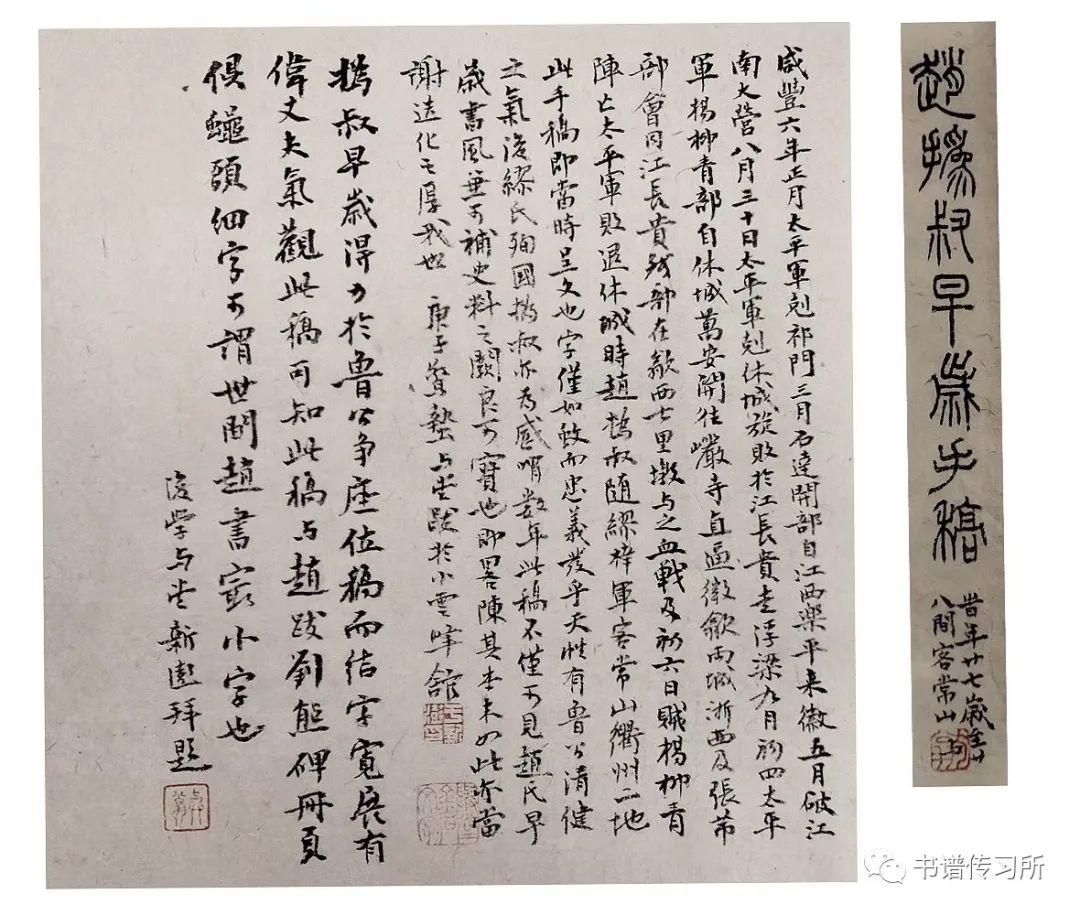 趙撝叔早歲手稿
昔年廿七歲
八間客常山
咸豐六年正月太平軍剋祁門三月石達開部自江西樂平來徽五月破江
南大營八月三十日太平軍剋休城旋敗於江長貴走浮梁九月初四太平
軍楊柳青部自休城萬安開往巖寺直逼徽歙兩城浙西及張芾
部會同江長貴殘部在歙西七里墩与之血戰及初六日賊楊柳青
陣亡太平軍敗退休城時趙撝叔随繆梓軍客常山衢州二地
此手稿即當時呈文也字僅如蚊而忠義發乎天性有魯公清健
之氣後繆氏殉國撝叔亦為感喟数年此稿不僅可見趙氏早
歲書風並可補史料之闕良可寶也即畧陳其本末如此亦當
謝造化之厚我也 庚子驚蟄与堂跋於小雲峰館
撝叔早歲得力於魯公争座位稿而结字寛展有
偉丈夫氣觀此稿可知此稿与趙跋劉熊碑冊頁
俱蠅頭细字可謂世間趙書最小字也
後學与堂新遨拜題
书谱传习所